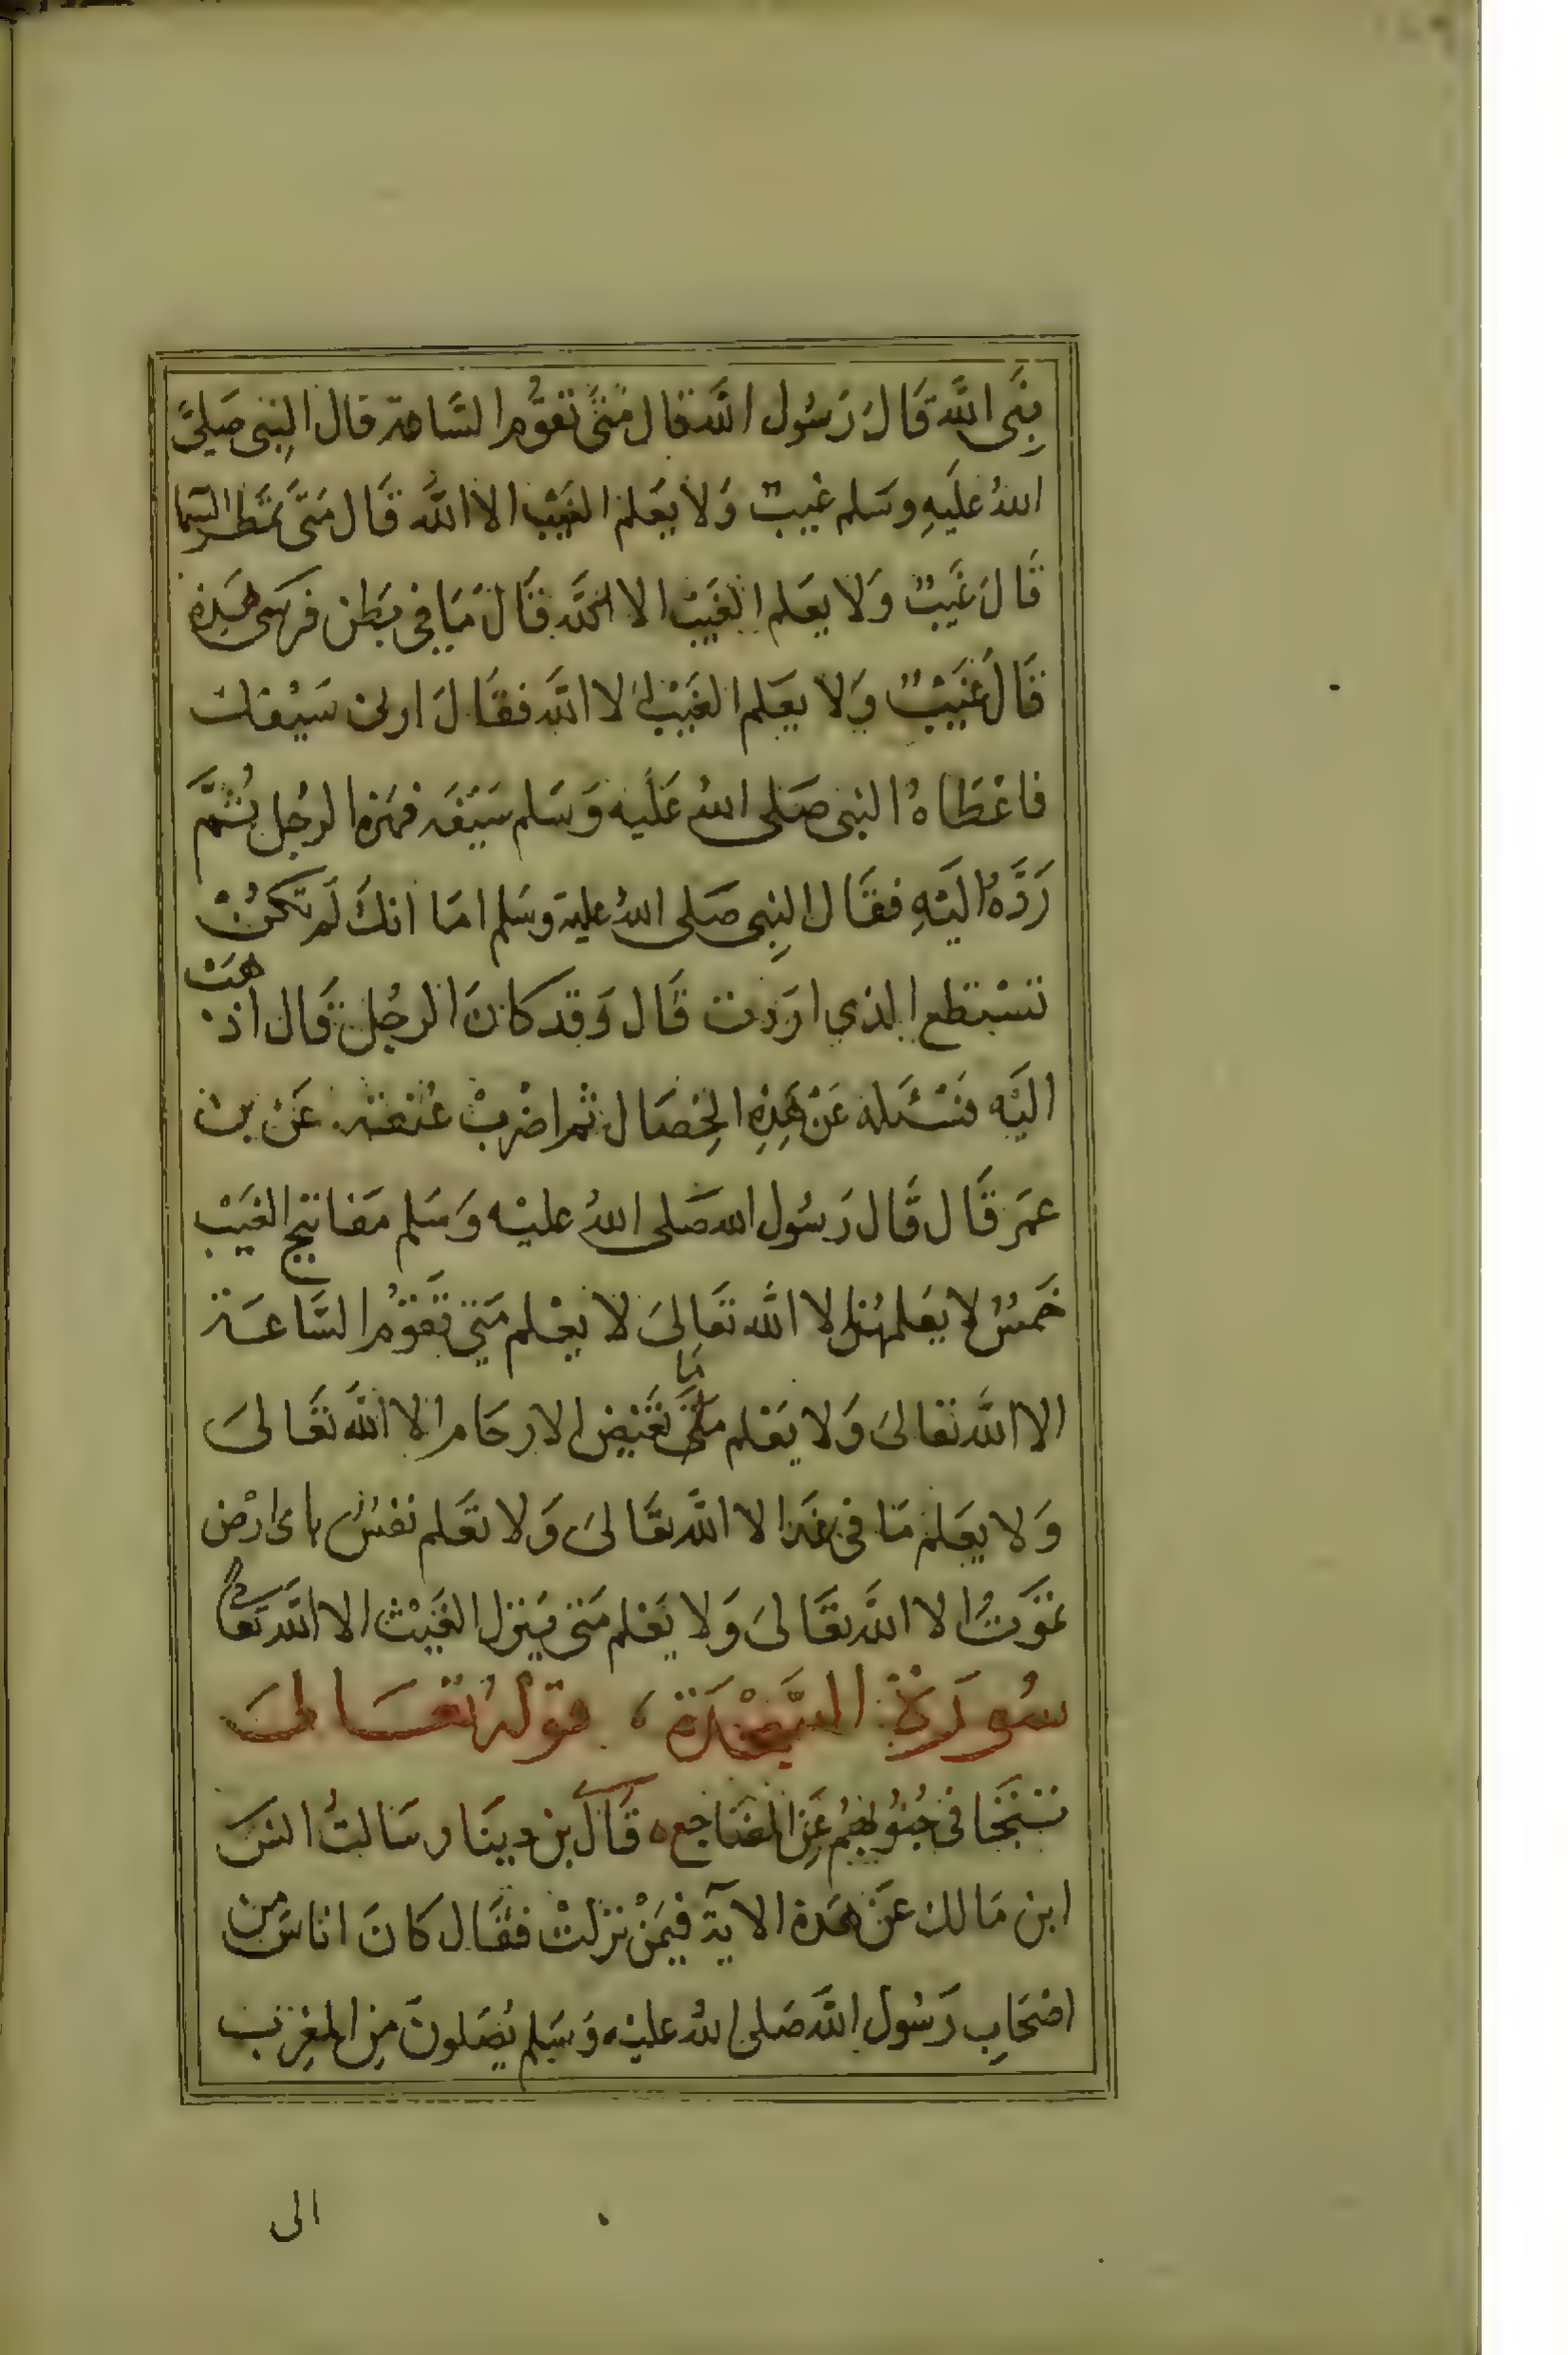 نبي الله قال رسول الله قال متى تقوم الساعة قال النبي صلى
الله عليه وسلم غيب ولا يعلم الغيب الا الله قال متى تمطر السما
قال غيب ولا يعلم الغيب الا الله قال ما في بطن فرسي هذه
قال غيب ولا يعلم الغيب الا الله فقال ارني سيفك
فاعطاه النبي صلى الله عليه وسلم سيفه فهزه الرجل ثم
رده اليه فقال النبي صلى الله عليه وسلم اما انك لم تكن
تستطع الذي اردت قال وقد كان الرجل قال اذهب
اليه فسئله عن هذه الخصال ثم اضرب عنقه عن بن
عمر قال قال رسول الله صلى الله عليه وسلم مفاتيح الغيب
خمس لا يعلمهن الا الله تعالى لا يعلم متى تقوم الساعة
الا الله تعالى ولا يعلم ما تغيض الارحام الا الله تعالى
ولا يعلم ما في غد الا الله تعالى ولا تعلم نفس باى ارض
تموت الا الله تعالى ولا يعلم متى ينزل الغيث الا الله تعالى
سورة السجدة قوله تعالى
تتجافى جنوبهم عن المضاجع قال بن دينار سالت انس
ابن مالك عن هذه الاية فيمن نزلت فقال كان اناس من
اصحاب رسول الله صلى الله عليه وسلم يصلون من المغرب
الى